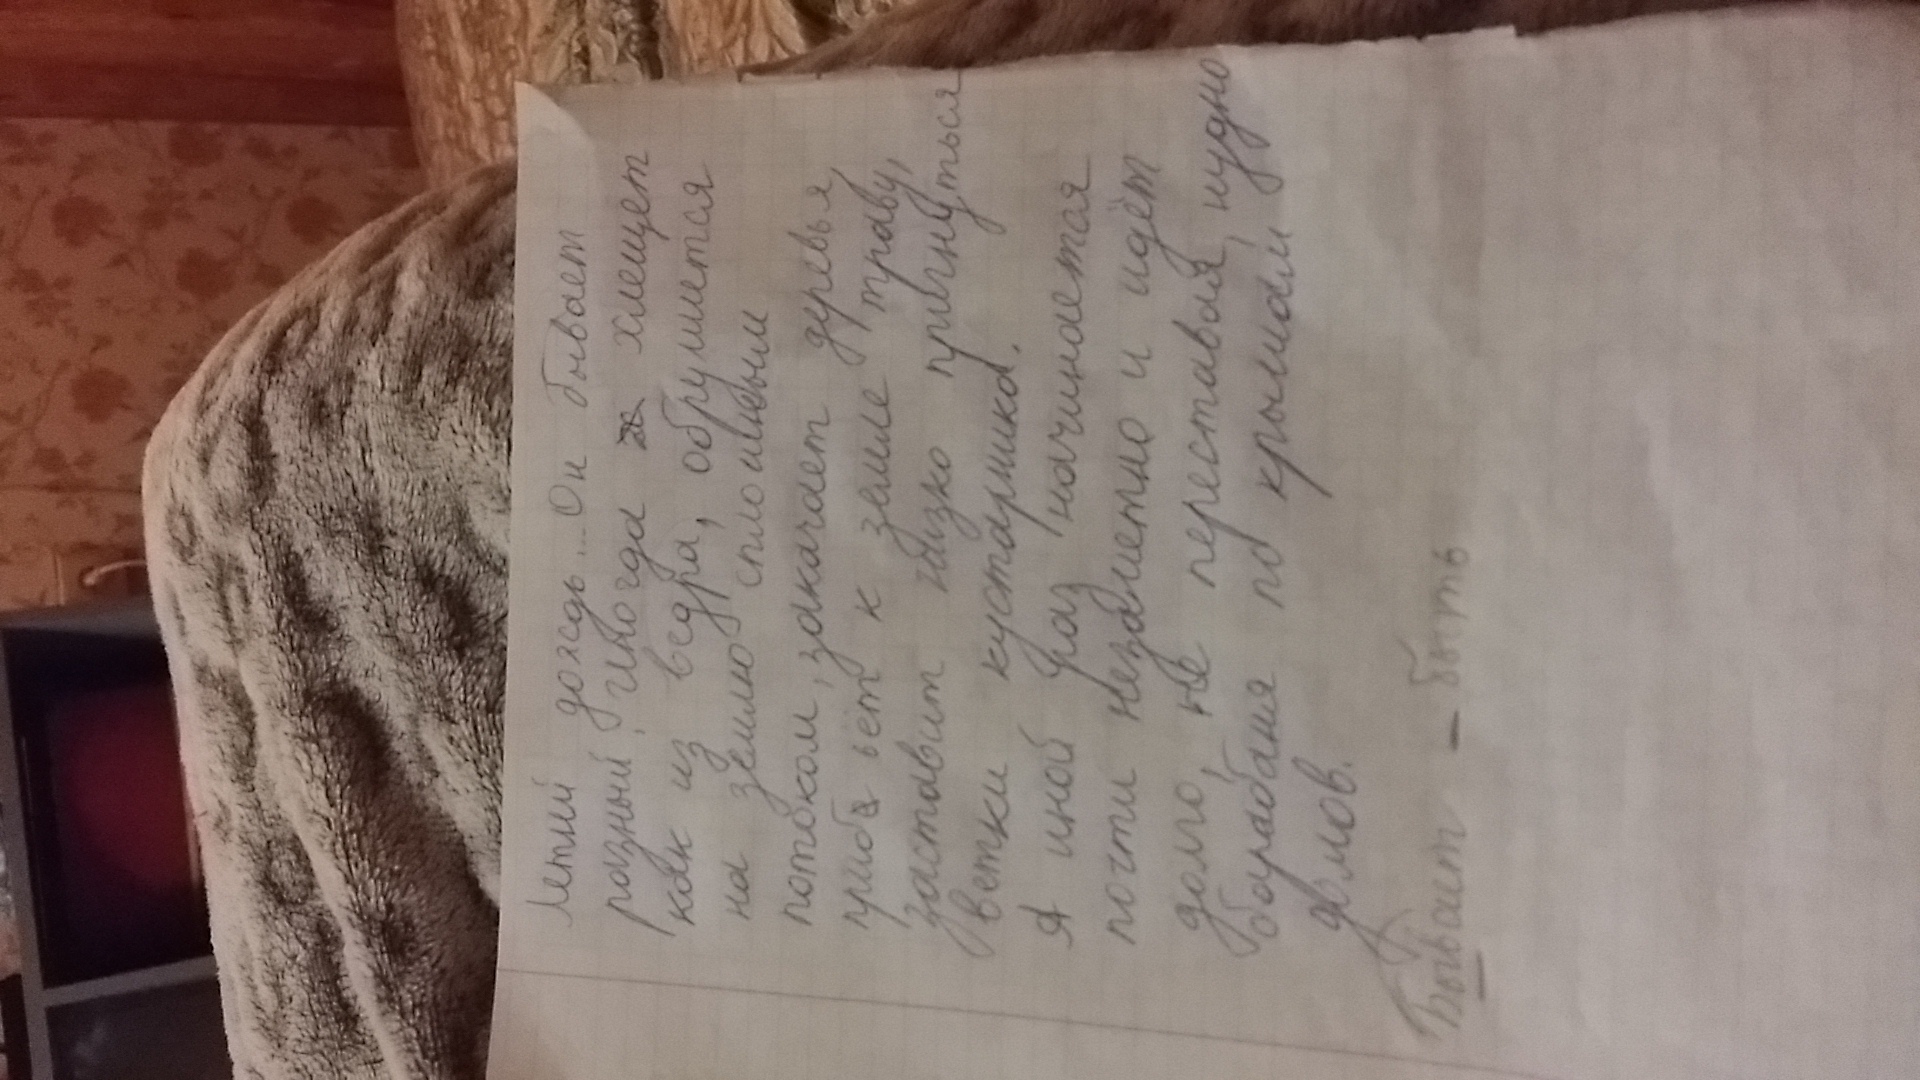 Летний дождь... Он бывает
разный. Иногда хлещет
как из ведра, обрушмется
на землю сплошным
потоком, закачает деревья,
прибьёт к земле траву,
заставит низко пригнуться
ветки кустарника.
А иной раз начинается
почти незаметно и идёт
долго, не переставая, нудно
барабаня по крышам
домов.
Бывает – быть